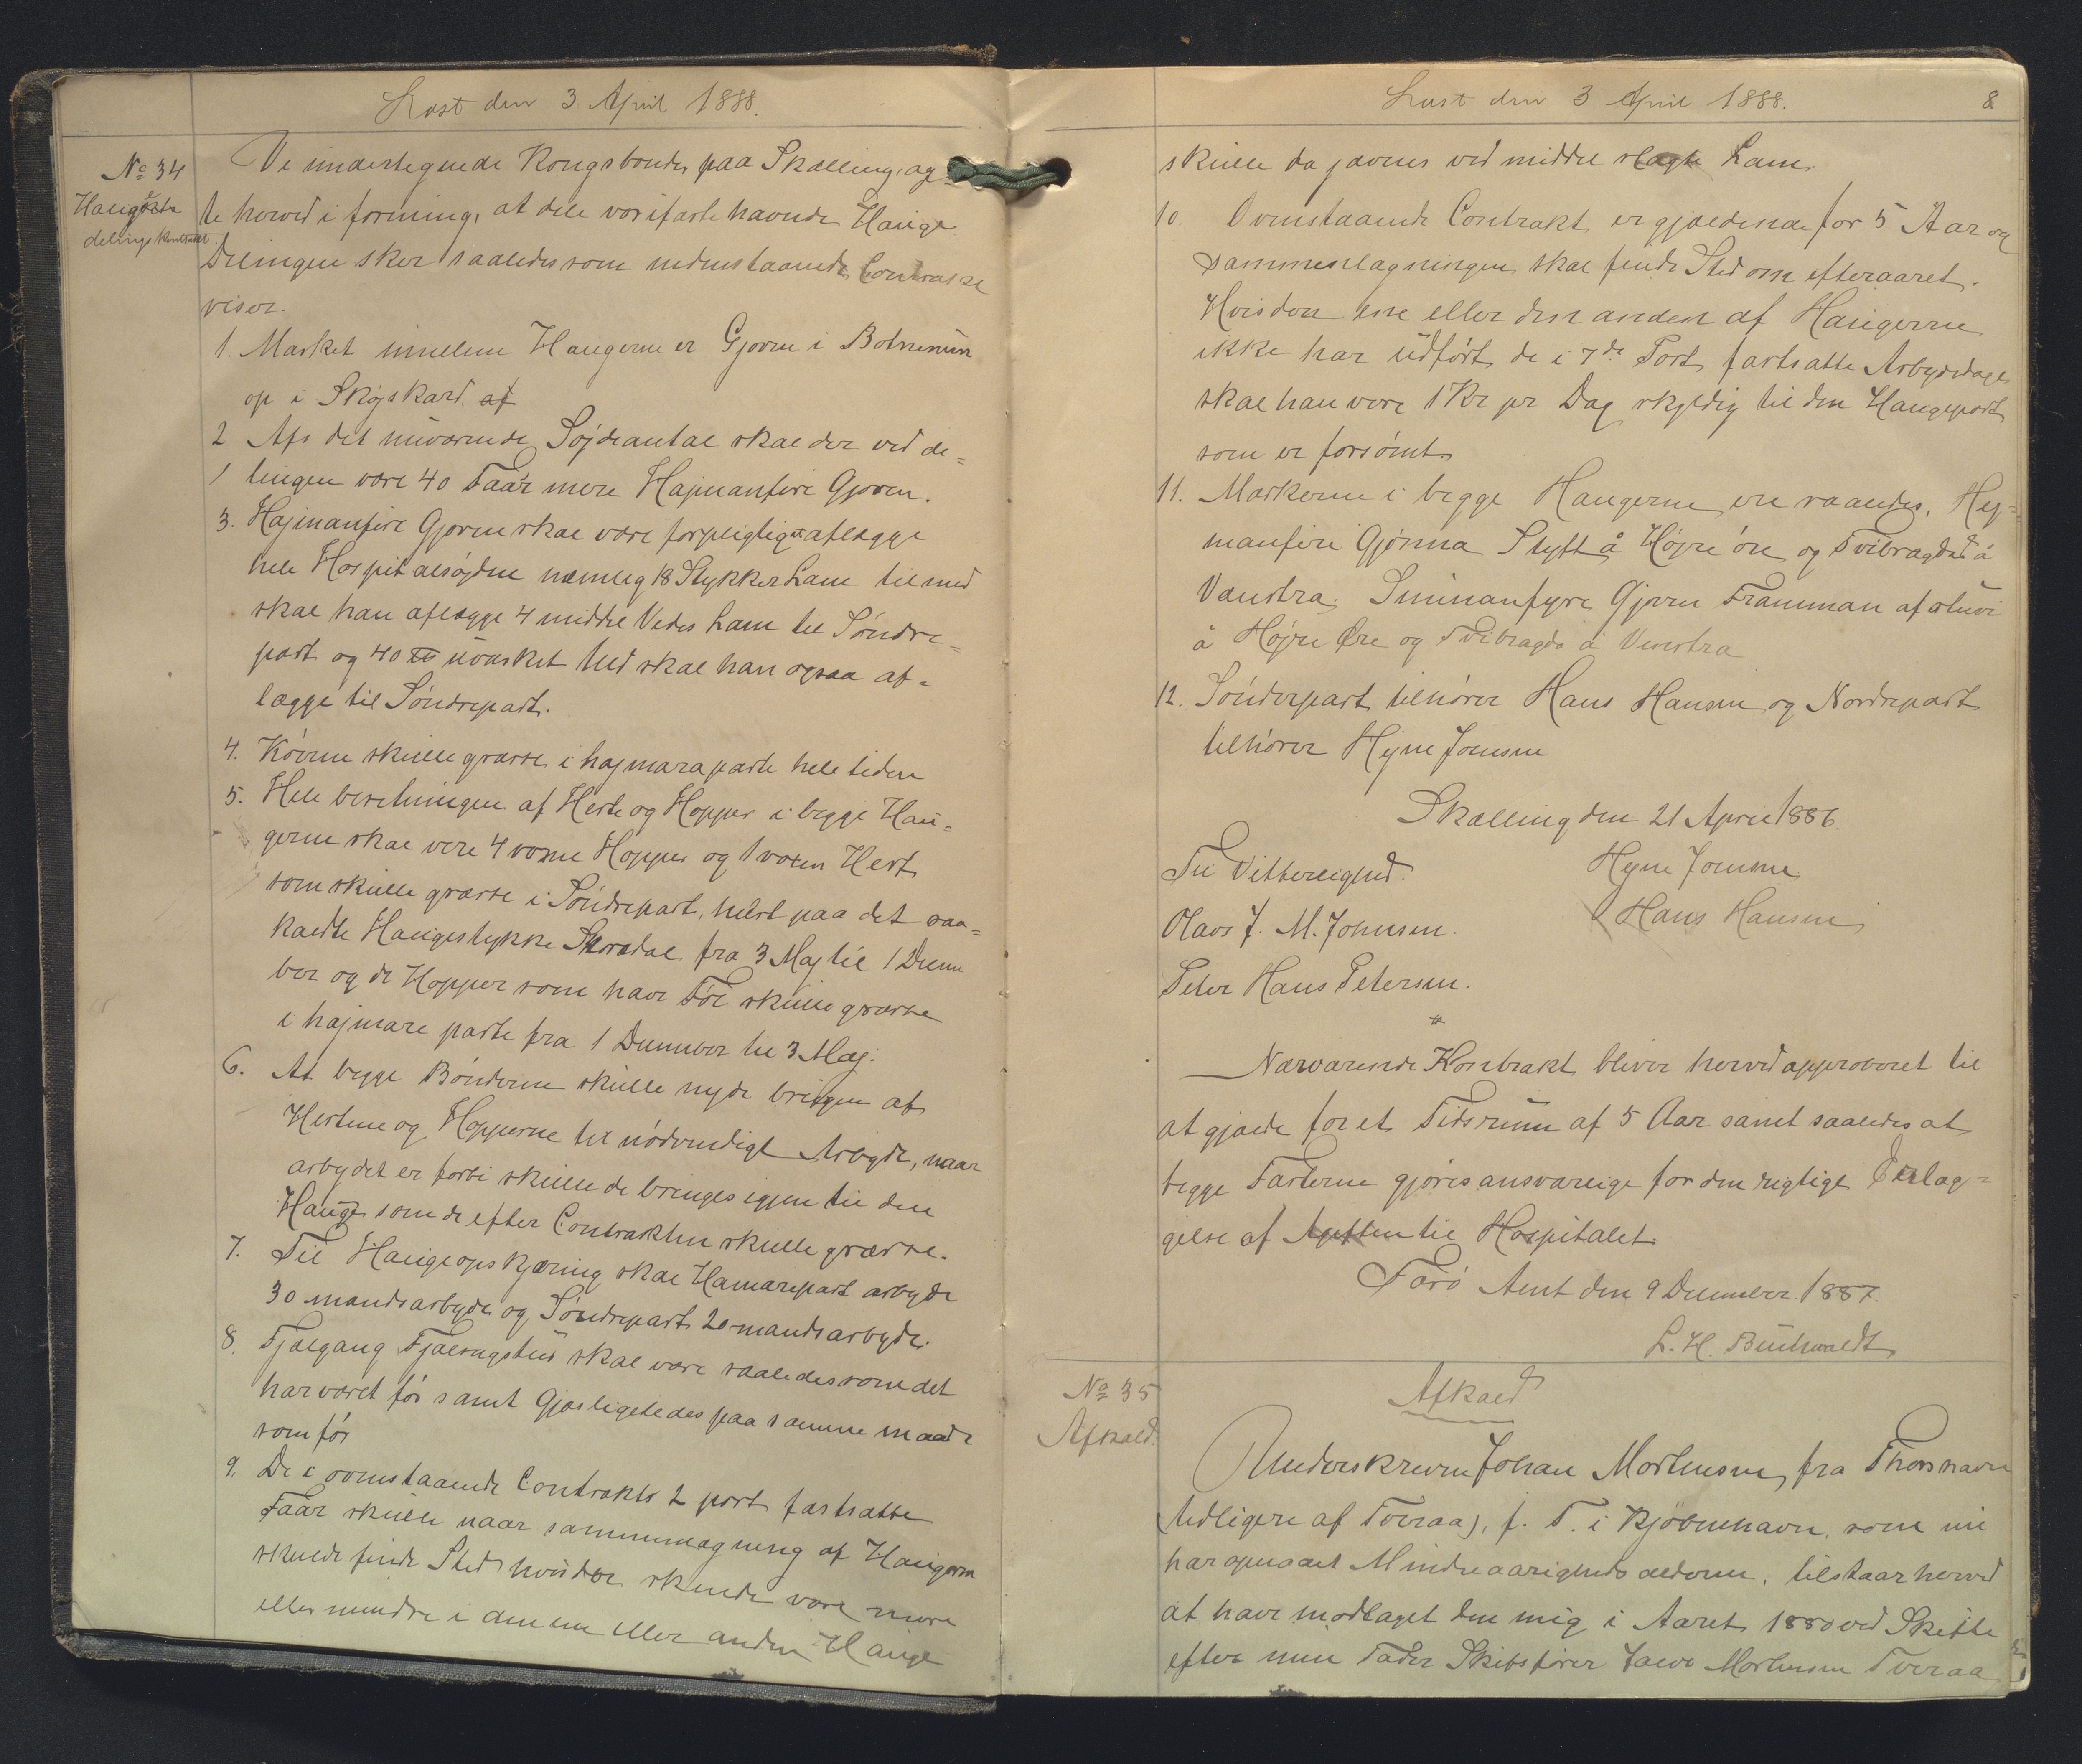 Læst den 3 April 1888.
No 34
Haugedelingskontrakt.
Vi undertegnede Kongsbønder paa Skælling, ag=
te herved i forening, at dele vor ifaste havende Hauge
Delingen sker saaledes som nedenstaaende Contrakt
viser.
1. Mærket imellem Haugerne er Gjoven i Botninun
op i Skøjskard. af
2 Afs det nuværende Søjdeantal skal der ved de=
lingen være 40 Faar mere Hajmanfire Gjoven.
3. Hajmanfire Gjoven skal være forpligtig at aflægge
hele Hospitalsøjdne nemlig 18 Stykker Lam til med
skal han aflægge 4 middel Vedes Lam til Søndre=
part og 40 ℔ uvasket Uld skal han ogsaa af=
lægge til Søndrepart.
4. Køerne skulle græsse i hajmaraparte hele tiden
5. Hele besetningen af Heste og Hopper i begge Hau=
gerne skal vere 4 voxne Hopper og 1 voxen Hest
som skulle græsse i Søndrepart, helst paa det saa=
kaldte Haugestykke Skoradal fra 3 Maj til 1 Decem
ber og de Hopper som have Føl skulle græsse
i hajmare parte fra 1 December til 3 Maj.
6. At begge Bønderne skulle nyde brugen af
Hestene og Hopperne til nødvendigt Arbyde, naar
arbydet er forbi skulle de bringes igjen til den
Hauge som de efter Contrakten skulle græsse.
7. Til Haugeopskjæring skal Hamarepart arbyde
30 mandsarbyde og Søndrepart 20 mandsarbyde.
8. Fjalgang Fjalsagstur skal være saaledes som det
har været før samt Gjæs ligeledes paa samme maade
som før
9. De i ovenstaaende Contrakts 2 post fastsatte
Faar skulle naar sammenlagning af Haugerne
skulde finde Sted hvis der skulde være mere
eller mindre i den ene eller anden Hauge
Læst den 3 April 1888.
8
skulle da javnes ved middel slagte Lam.
10. Ovenstaaende Contrakt er gjældende for 5 Aar og
sammenlagningen skal finde Sted om efteraaret.
Hvis den ene eller den anden af Haugerne
ikke har udført de i 7de Post fastsatte Arbydsdage
skal han være 1 Kr pr Dag skyldig til den Haugepart
som er forsømt
11. Mærkerne i begge Haugerne ere saaledes, Hey=
manfire Gjønna Stuft å Højre øre og Tvibragdad å
Vanstra. Sunnanfyre Gjovn Framman af stuvi
å Højre Øre og Tvibragda å Venstra
12. Sønderpart tilhører Hans Hansen og Nordrepart
tilhører Hejne Joensen
Skælling den 21 April 1886.
Til Vitterlighed.
Hejne Joensen
Hans Hansen
Olavs J. M. Johnsen.
Peter Hans Petersen.
Nærværende Kontrakt bliver herved approberet til
at gjælde for et Tidsrum af 5 Aar samt saaledes at
begge Parterne gjøres ansvarlige for den rigtige Erlæg=
gelse af Afgiften til Hospitalet
Færø Amt den 9 December 1887.
L. H. Buchwaldt
No 35
Afkald.
Afkald
Underskreven Johan Mortensen, fra Thorshavn
(tidligere af Tveraa), p. T. i Kjøbenhavn, som nu
har opnaaet Mindreaarigheds alderen, tilstaar herved
at have modtaget den mig i Aaret 1880 ved Skifte
efter min Fader Skibsfører Jacob Mortensen Tveraa